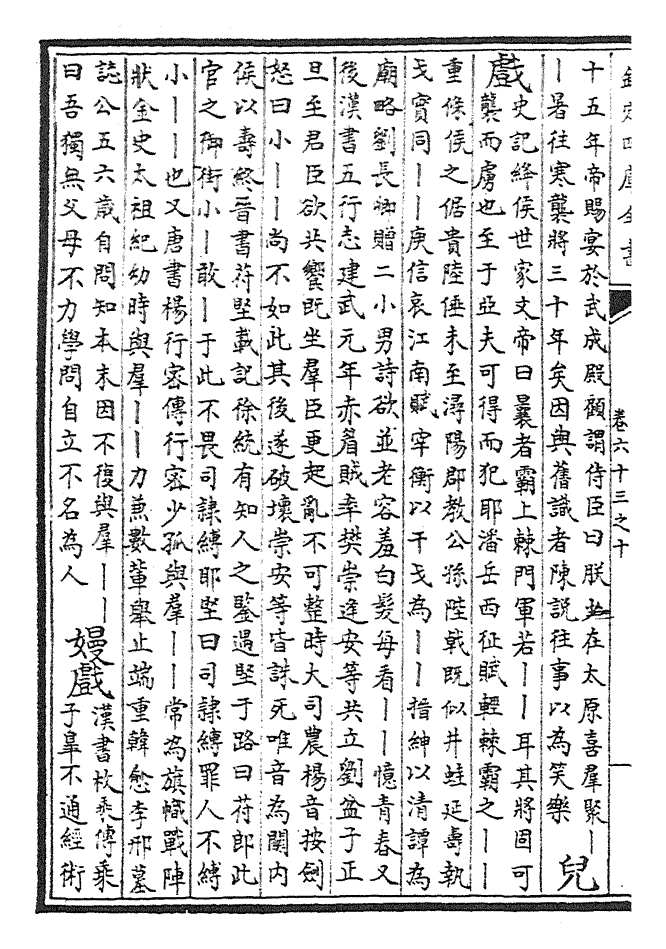 欽定四庫全書
卷六十三之十
十五年帝賜宴於武成殿顧謂侍臣曰朕少在太原喜羣聚丨
丨暑往寒襲將三十年矣因與舊識者陳説往事以為笑樂 兒
戲 史記絳侯世家文帝曰曩者霸上棘門軍若丨丨耳其將固可
襲而虜也至于亞夫可得而犯耶潘岳西征賦輕棘霸之丨丨
重條侯之倨貴陸倕未至潯陽郡教公孫陛戟既似井蛙延壽執
戈實同丨丨庾信哀江南賦宰衡以干戈為丨丨搢紳以清譚為
廟略劉長卿贈二小男詩欲並老容羞白髮每看丨丨憶青春又
後漢書五行志建武元年赤眉賊率樊崇逄安等共立劉盆子正
旦至君臣欲共饗既坐羣臣更起亂不可整時大司農楊音按劍
怒曰小丨丨尚不如此其後遂破壞崇安等皆誅死唯音為關内
侯以壽終晉書苻堅載記徐統有知人之鑒遇堅于路曰苻郎此
官之御街小丨敢丨于此不畏司隷縛耶堅曰司隷縛罪人不縛
小丨丨也又唐書楊行密傳行密少孤與羣丨丨常為旗幟戰陣
狀金史太祖紀幼時與羣丨丨力兼數輩舉止端重韓愈李邢墓
誌公五六歲自問知本末因不復與羣丨丨
曰吾獨無父母不力學問自立不名為人 嫚戲 漢書枚乘傳乘
子臯不通經術